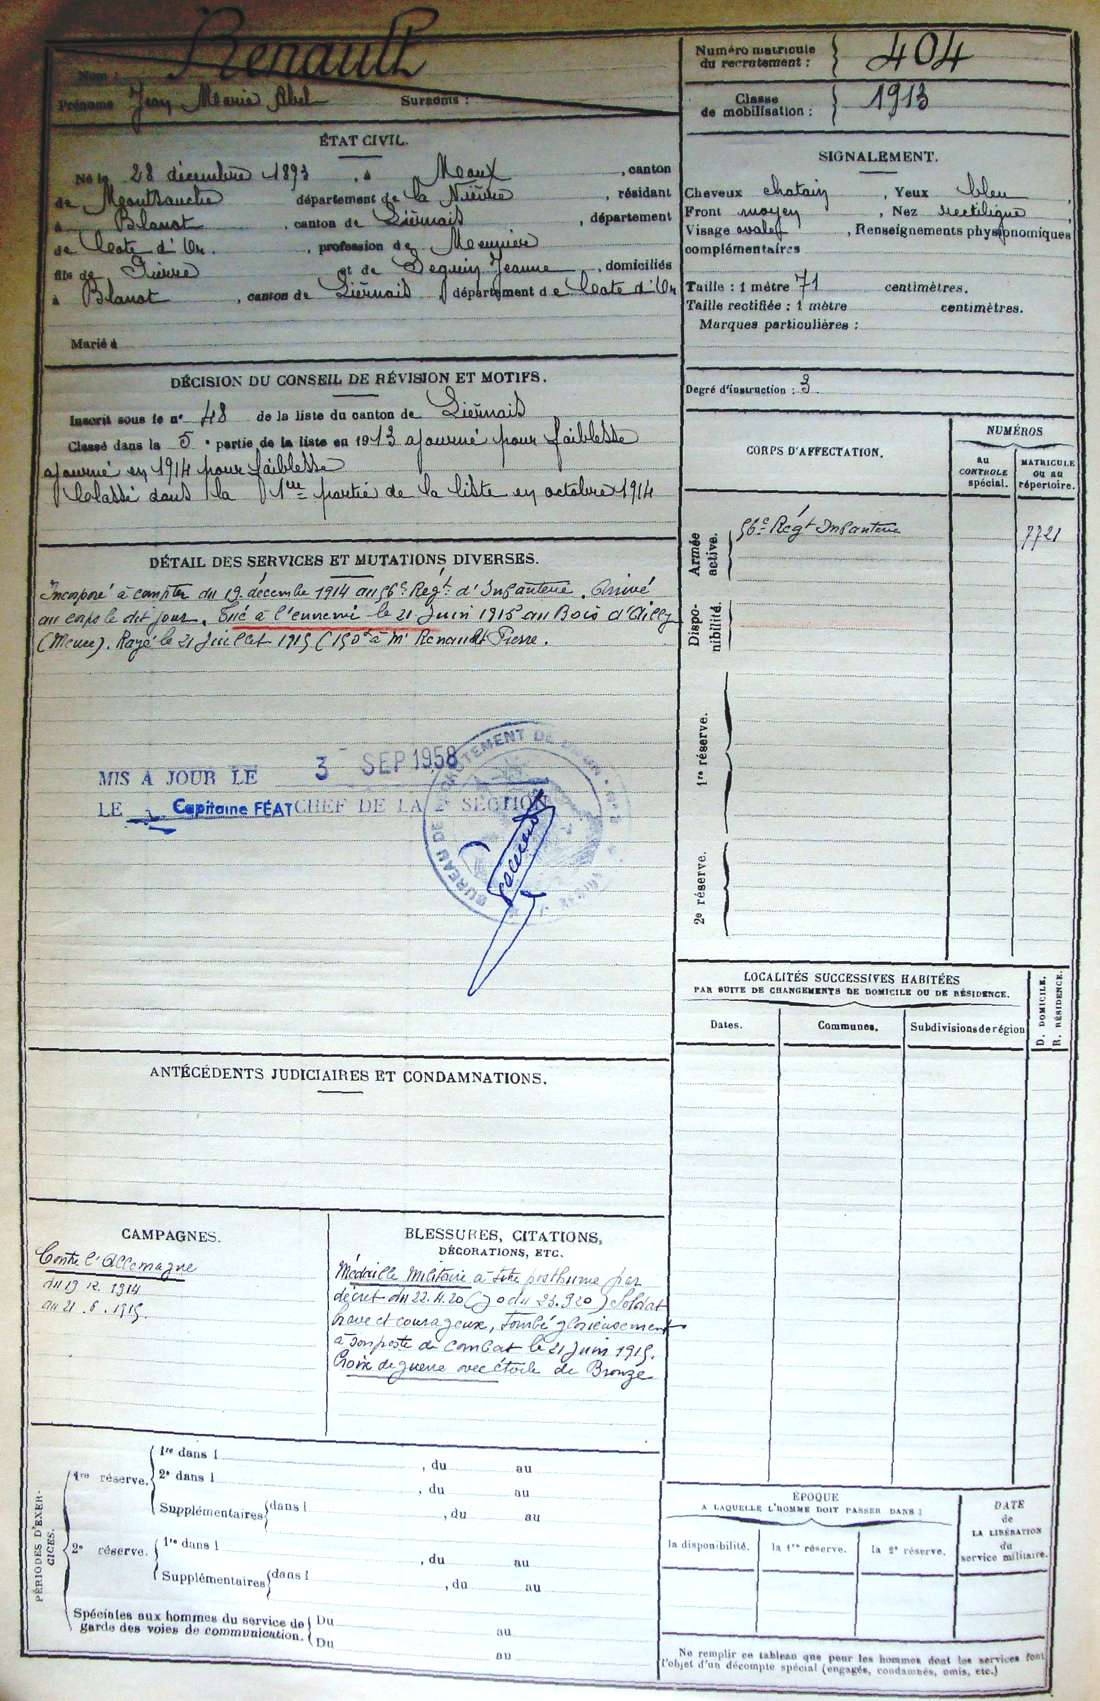 Nom : Renault
Prénoms Jean Marie Abel Surnoms :
Numéro matricule
du recrutement : 404
Classe
de mobilisation : 1913
ÉTAT CIVIL.
Né le 28 décembre 1893, à Meaux, canton
de Montsauche département de la Nièvre, résidant
à Blanot, canton de Liernais, département
de la Côte d'Or, profession de Meunier
fils de Pierre et de Seguin Jeanne, domiciliés
à Blanot, canton de Liernais, département de la Côte d'Or
Marié à
SIGNALEMENT.
Cheveux chatain, Yeux bleu
Front moyen, Nez rectiligne
Visage ovale, Renseignements physionomiques
complémentaires
Taille : 1 mètre 71 centimètres.
Taille rectifiée : 1 mètre centimètres.
Marques particulières :
Degré d'instruction : 3
DÉCISION DU CONSEIL DE RÉVISION ET MOTIFS.
Inscrit sous le n° 48 de la liste du canton de Liernais
Classé dans la 5e partie de la liste en 1913 ajourné pour faiblesse
ajourné en 1914 pour faiblesse
Classé dans la 1ere partie de la liste en octobre 1914
DÉTAIL DES SERVICES ET MUTATIONS DIVERSES.
Incorporé à compter du 19 décembre 1914 au 56e Régt d'Infanterie. Arrivé
au corps le dit jour. Tué à l'ennemi le 21 Juin 1915 au Bois d'Ailly
(Meuse). Rayé le 21 Juillet 1915 (150f à Mr Renault Pierre.
MIS A JOUR LE 3 SEP 1958
LE Capitaine FÉAT CHEF DE LA 2e SECTION
BUREAU DE RECRUTEMENT DE DIJON
CORPS D'AFFECTATION.
NUMÉROS
au
CONTROLE
spécial.
MATRICULE
ou au
répertoire.
Armée
active.
56e Régt Infanterie 7721
Dispo-
nibilité.
1re réserve.
2e réserve.
LOCALITÉS SUCCESSIVES HABITÉES
PAR SUITE DE CHANGEMENTS DE DOMICILE OU DE RÉSIDENCE.
Dates. Communes. Subdivisions de région
D. DOMICILE.
R. RÉSIDENCE.
ANTÉCÉDENTS JUDICIAIRES ET CONDAMNATIONS.
CAMPAGNES.
Contre l'Allemagne
du 19.12.1914
au 21.6.1915.
BLESSURES, CITATIONS,
DÉCORATIONS, ETC.
Médaille Militaire à titre posthume par
décret du 22.4.20 (JO du 23.9.20) Soldat
brave et courageux, tombé glorieusement
à son poste de combat le 21 juin 1915.
Croix de guerre avec étoile de Bronze
PÉRIODES D'EXER-
CICES.
1re réserve.
1re dans l , du au
2e dans l , du au
Supplémentaires dans l , du au
2e réserve.
1re dans l , du au
Supplémentaires dans l , du au
Spéciales aux hommes du service de
garde des voies de communication.
Du au
Du au
ÉPOQUE
A LAQUELLE L'HOMME DOIT PASSER DANS :
la disponibilité. la 1re réserve. la 2e réserve.
DATE
de
LA LIBÉRATION
du
service militaire.
Ne remplir ce tableau que pour les hommes dont les services font
l'objet d'un décompte spécial (engagés, condamnés, omis, etc.)